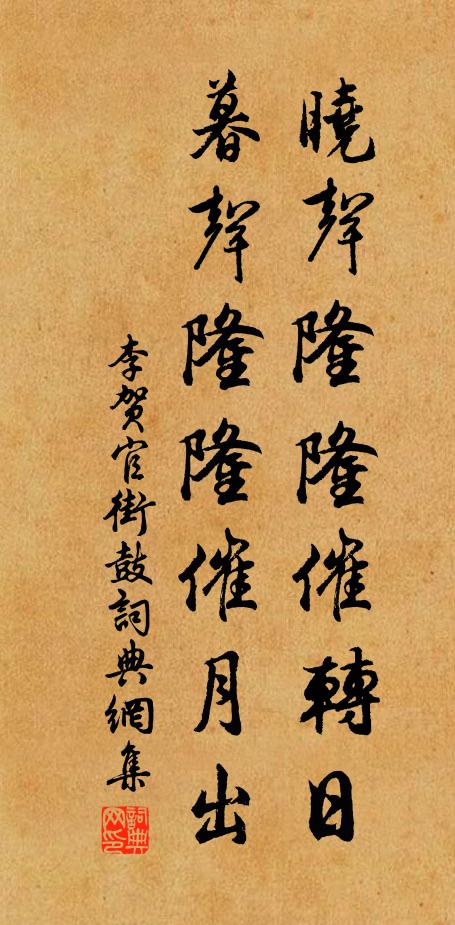 曉聲隆隆催轉日
暮聲隆隆催月出
李賀官街鼓詞典網集
詞典网印